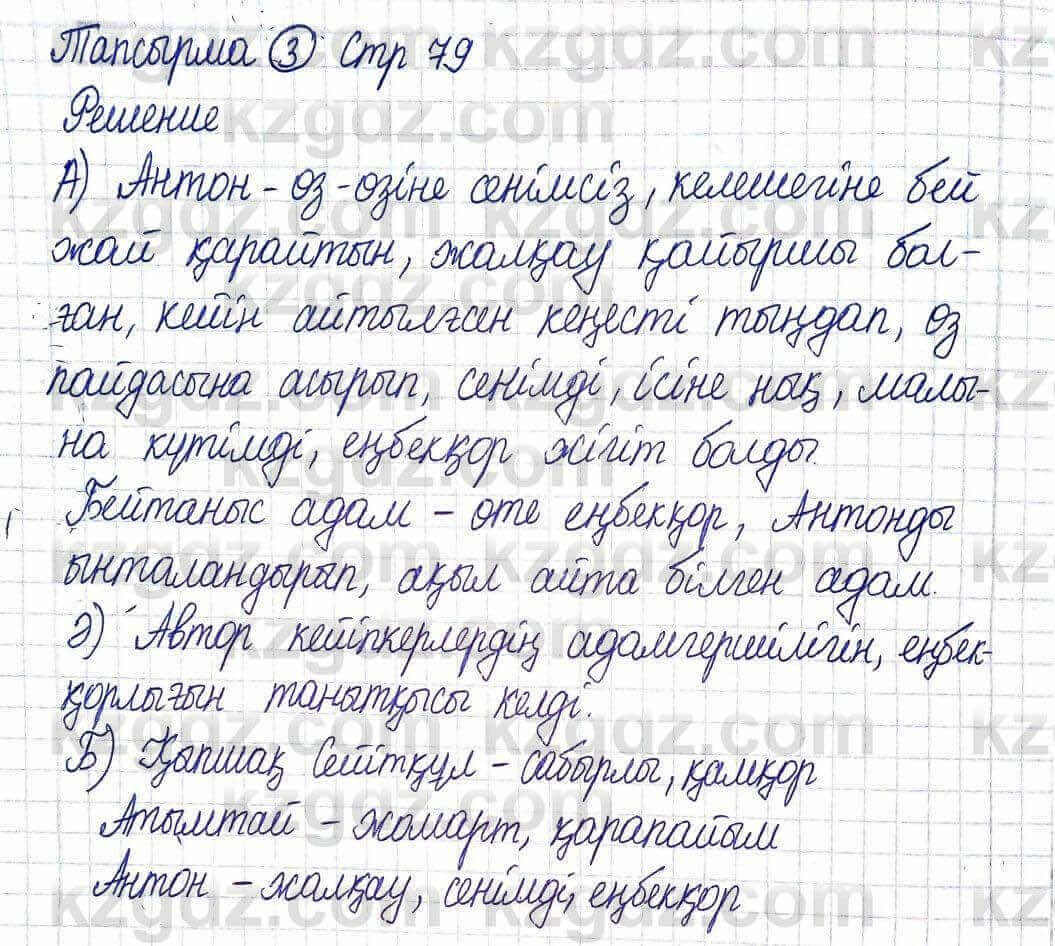 Тапсырма ③ Стр 79
Решение
А) Антон - өз-өзіне сенімсіз, келешегіне бей
жай қарайтын, жалқау қайыршы бол-
ған, кейін айтылған кеңесті тыңдап, өз
пайдасына асырып, сенімді, ісіне нық, малы-
на күтімді, еңбекқор жігіт болды.
Бейтаныс адам - өте еңбекқор, Антонды
ынталандырып, ақыл айта білген адам.
Ә) Автор кейіпкерлердің адамгершілігін, еңбек-
қорлығын танытқысы келді.
Б) Қыпшақ Сейітқұл - сабырлы, қамқор
Атымтай - жомарт, қарапайым
Антон - жалқау, сенімді, еңбекқор
kzgdz.com